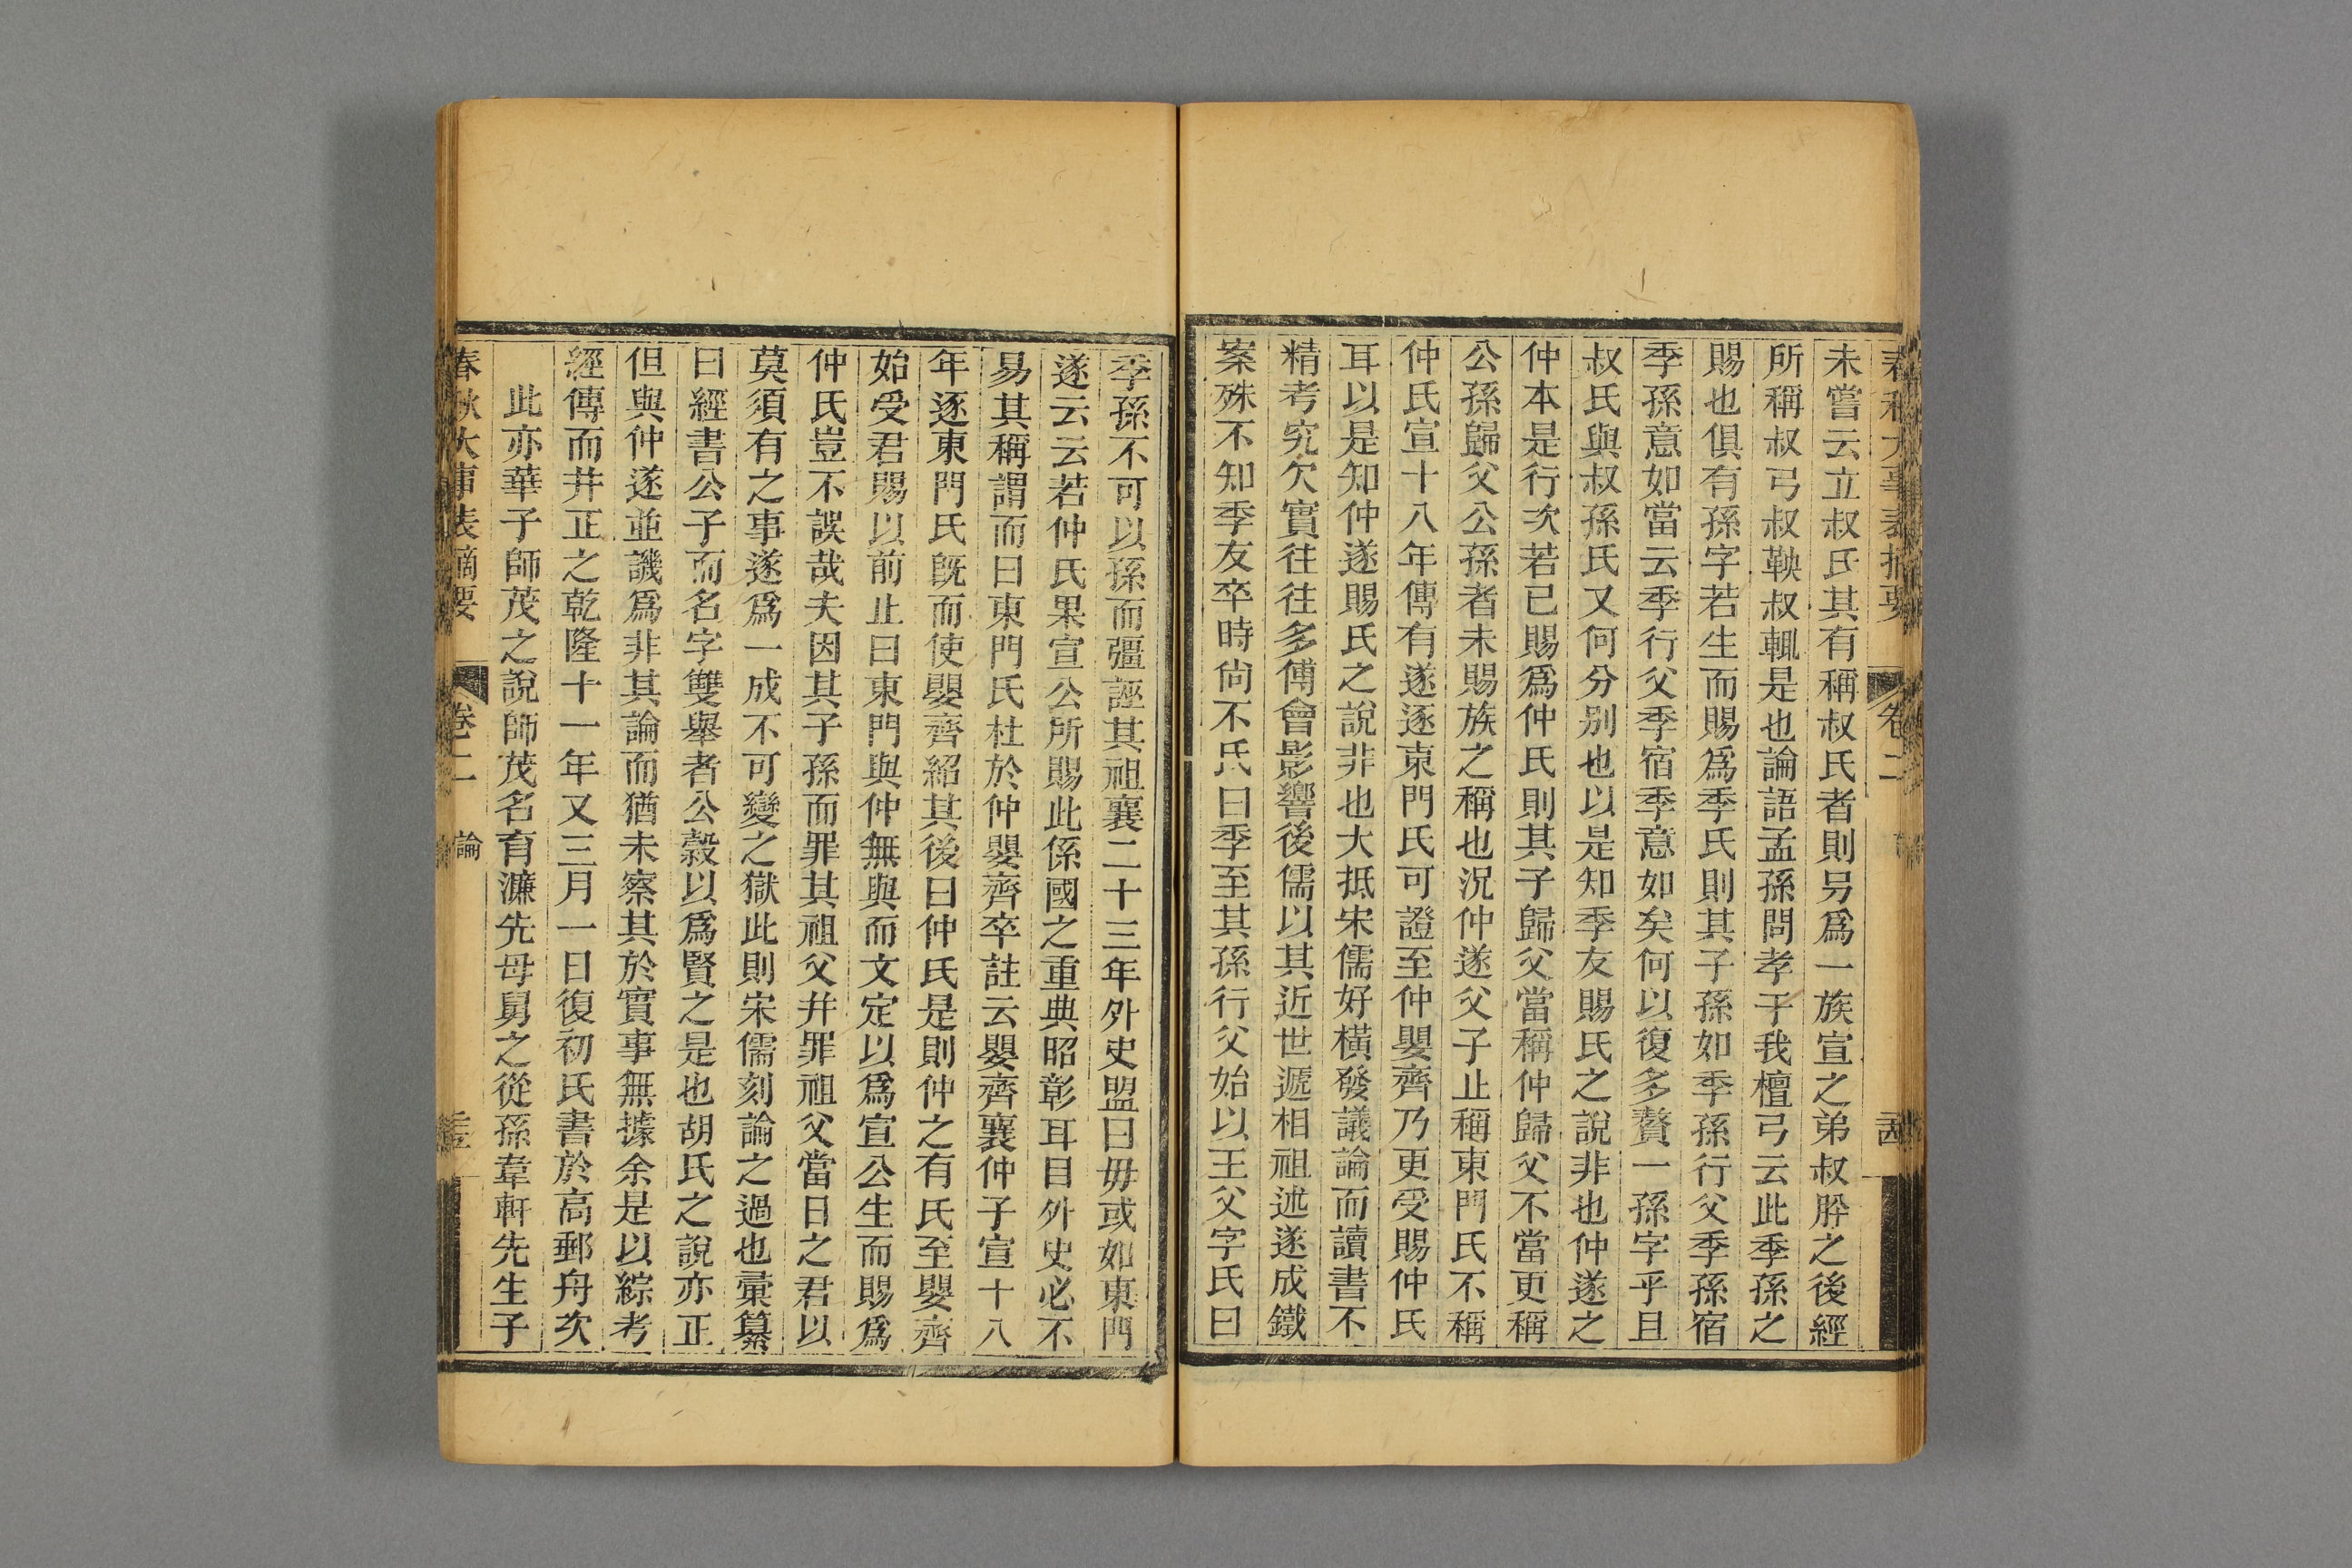 春秋大事表摘要 卷二
未嘗云立叔氏其有稱叔氏者則另爲一族宣之弟叔肸之後經
所稱叔弓叔鞅叔輒是也論語孟孫問孝于我檀弓云此季孫之
賜也俱有孫字若生而賜爲季氏則其子孫如季孫行父季孫宿
季孫意如當云季行父季宿季意如矣何以復多贅一孫字乎且
叔氏與叔孫氏又何分別也以是知季友賜氏之說非也仲遂之
仲本是行次若已賜爲仲氏則其子歸父當稱仲歸父不當更稱
公孫歸父公孫者未賜族之稱也況仲遂父子止稱東門氏不稱
仲氏宣十八年傳有遂逐東門氏可證至仲嬰齊乃更受賜仲氏
耳以是知仲遂賜氏之說非也大抵宋儒好橫發議論而讀書不
精考究欠實往往多傅會影響後儒以其近世遞相祖述遂成鐵
案殊不知季友卒時尙不氏曰季至其孫行父始以王父字氏曰
季孫不可以孫而彊誣其祖襄二十三年外史盟曰毋或如東門
遂云云若仲氏果宣公所賜此係國之重典昭彰耳目外史必不
易其稱謂而曰東門氏杜於仲嬰齊卒註云嬰齊襄仲子宣十八
年逐東門氏旣而使嬰齊紹其後曰仲氏是則仲之有氏至嬰齊
始受君賜以前止曰東門與仲無與而文定以爲宣公生而賜爲
仲氏豈不誤哉夫因其子孫而罪其祖父并罪祖父當日之君以
莫須有之事遂爲一成不可變之獄此則宋儒刻論之過也彙纂
曰經書公子而名字雙舉者公穀以爲賢之是也胡氏之說亦正
但與仲遂並譏爲非其論而猶未察其於實事無據余是以綜考
經傳而并正之乾隆十一年又三月一日復初氏書於高郵舟次
此亦華子師茂之說師茂名育濂先母舅之從孫韋軒先生子
春秋大事表摘要 卷二 論